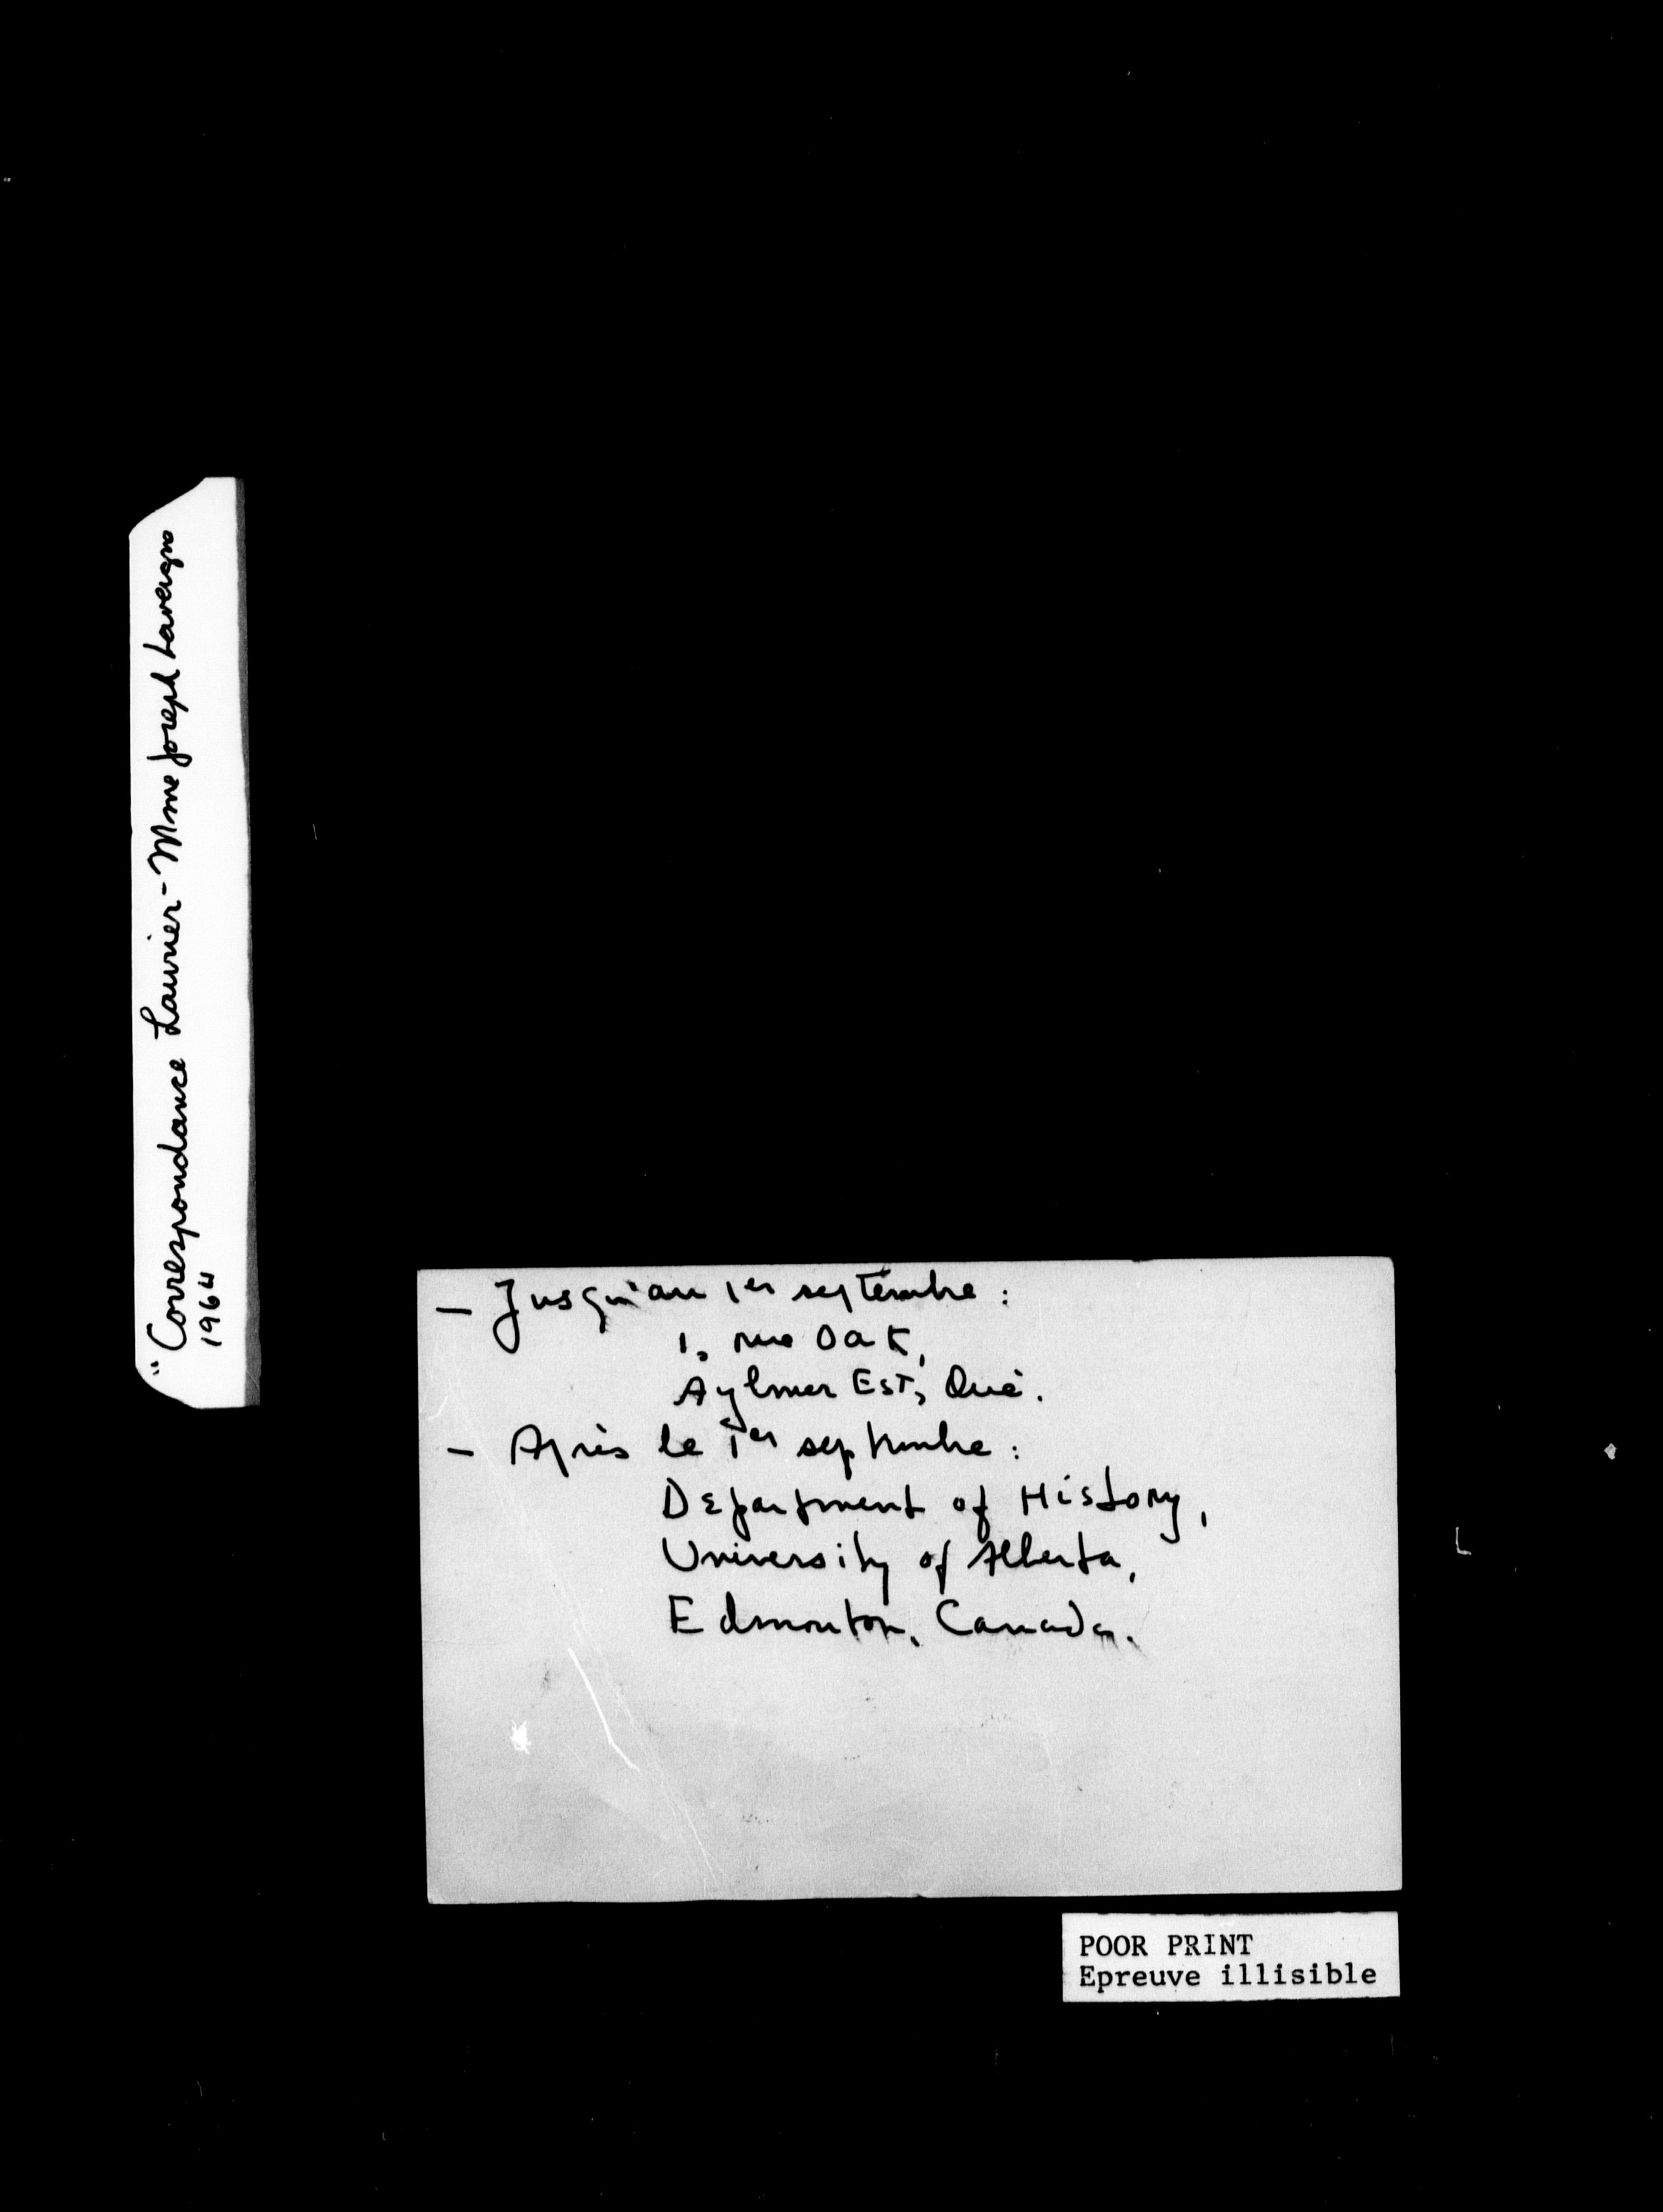 "Correspondance Laurier - Mme Joseph Lavergne
1964
— Jusqu'au 1er septembre :
1, rue Oak,
Aylmer Est, Qué.
— Après le 1er septembre :
Department of History,
University of Alberta,
Edmonton, Canada.
POOR PRINT
Epreuve illisible